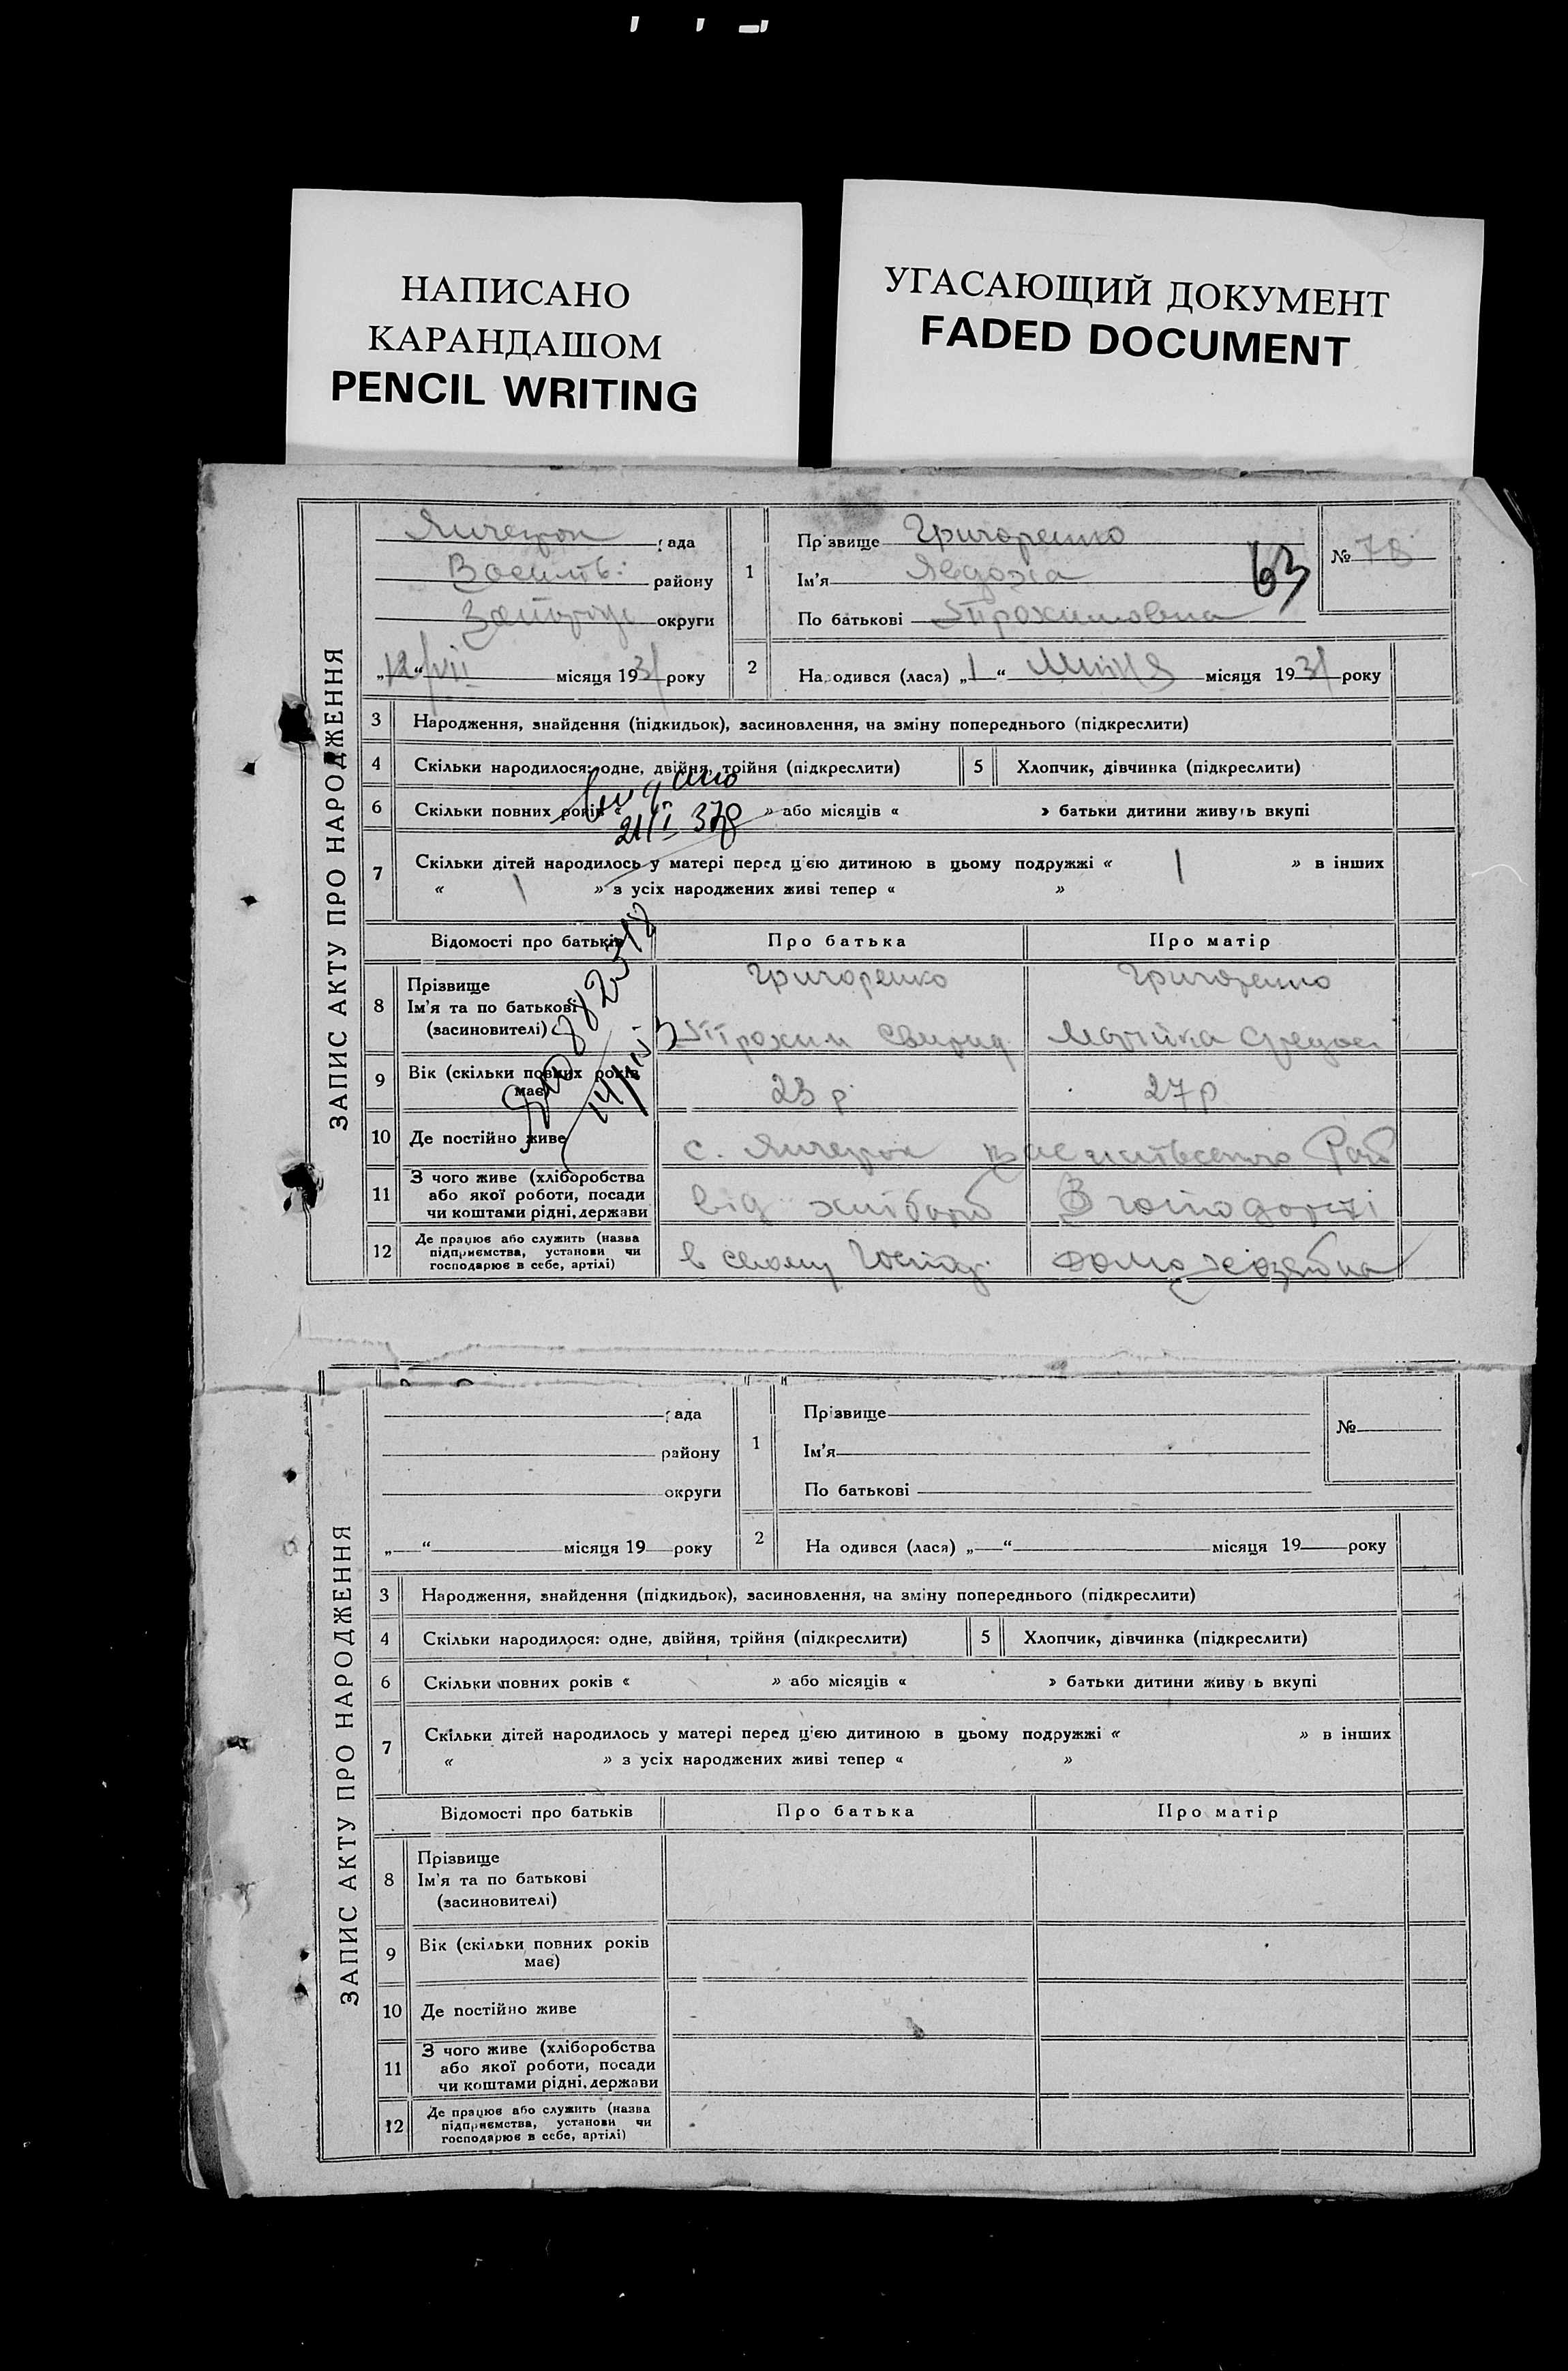 НАПИСАНО
КАРАНДАШОМ
PENCIL WRITING
УГАСАЮЩИЙ ДОКУМЕНТ
FADED DOCUMENT
ЗАПИС АКТУ ПРО НАРОДЖЕННЯ
Янчекрак рада
району
округи
„12“ VII місяця 1931 року
1
Прізвище Григоренко
Ім’я Явдоха
По батькові Трохимовна
63
№ 78
2
Народився (лася) „1“ Липня місяця 1931 року
3 Народження, знайдення (підкидьок), засиновлення, на зміну попереднього (підкреслити)
4 Скільки народилося: одне, двійня, трійня (підкреслити) 5 Хлопчик, дівчинка (підкреслити)
6 Скільки повних років « » або місяців « » батьки дитини живуть вкупі
7 Скільки дітей народилось у матері перед ц’єю дитиною в цьому подружжі « 1 » в інших
« 1 » з усіх народжених живі тепер « »
Відомості про батьків Про батька Про матір
8 Прізвище
Ім’я та по батькові
(засиновителі)
Григоренко Григоренко
Трохим Свирид.
9 Вік (скільки повних років
має)
23 р 27 р
10 Де постійно живе
с. Янчекрак
11 З чого живе (хліборобства
або якої роботи, посади
чи коштами рідні, держави
від хлібороб В господарстві
12 Де працює або служить (назва
підприємства, установи чи
господарює в себе, артілі)
в своему Господ. домохозяйка
ЗАПИС АКТУ ПРО НАРОДЖЕННЯ
рада
району
округи
„ “ місяця 19 року
1
Прізвище
Ім’я
По батькові
№
2
На одився (лася) „ “ місяця 19 року
3 Народження, знайдення (підкидьок), засиновлення, на зміну попереднього (підкреслити)
4 Скільки народилося: одне, двійня, трійня (підкреслити) 5 Хлопчик, дівчинка (підкреслити)
6 Скільки повних років « » або місяців « » батьки дитини живу ь вкупі
7 Скільки дітей народилось у матері перед ц’єю дитиною в цьому подружжі « » в інших
« » з усіх народжених живі тепер « »
Відомості про батьків Про батька Про матір
8 Прізвище
Ім’я та по батькові
(засиновителі)
9 Вік (скільки повних років
має)
10 Де постійно живе
11 З чого живе (хліборобства
або якої роботи, посади
чи коштами рідні, держави
12 Де працює або служить (назва
підприємства, установи чи
господарює в себе, артілі)